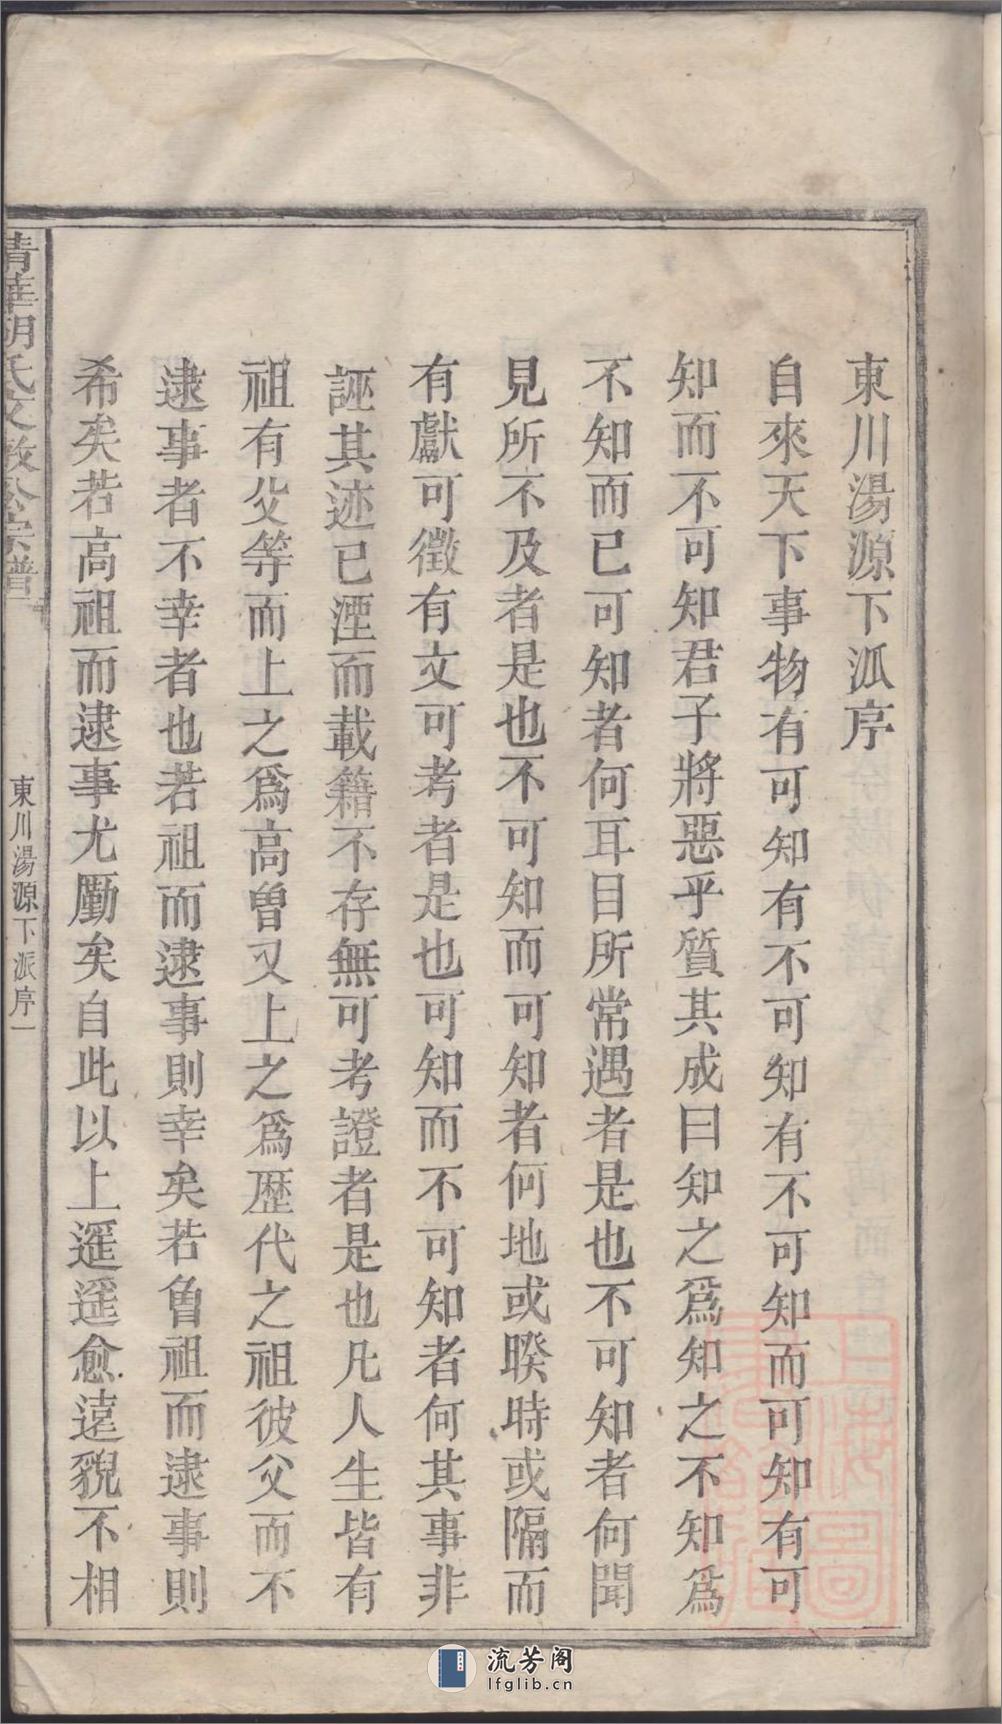 東川湯源下泒序
自來天下事物有可知有不可知有不可知而可知有可
知而不可知君子將惡乎質其成曰知之爲知之不知爲
不知而已可知者何耳目所常遇者是也不可知者何聞
見所不及者是也不可知而可知者何地或暌時或隔而
有獻可徵有文可考者是也可知而不可知者何其事非
誣其迹已湮而載籍不存無可考證者是也凡人生皆有
祖有父等而上之爲高曾又上之爲歴代之祖彼父而不
逮事者不幸者也若祖而逮事則幸矣若魯祖而逮事則
希矣若高祖而逮事尤勵矣自此以上遥遥愈遠貌不相
清華胡氏文敏公宗譜
東川湯源下派序一
上海圖書館藏
流芳阁
lfglib.cn